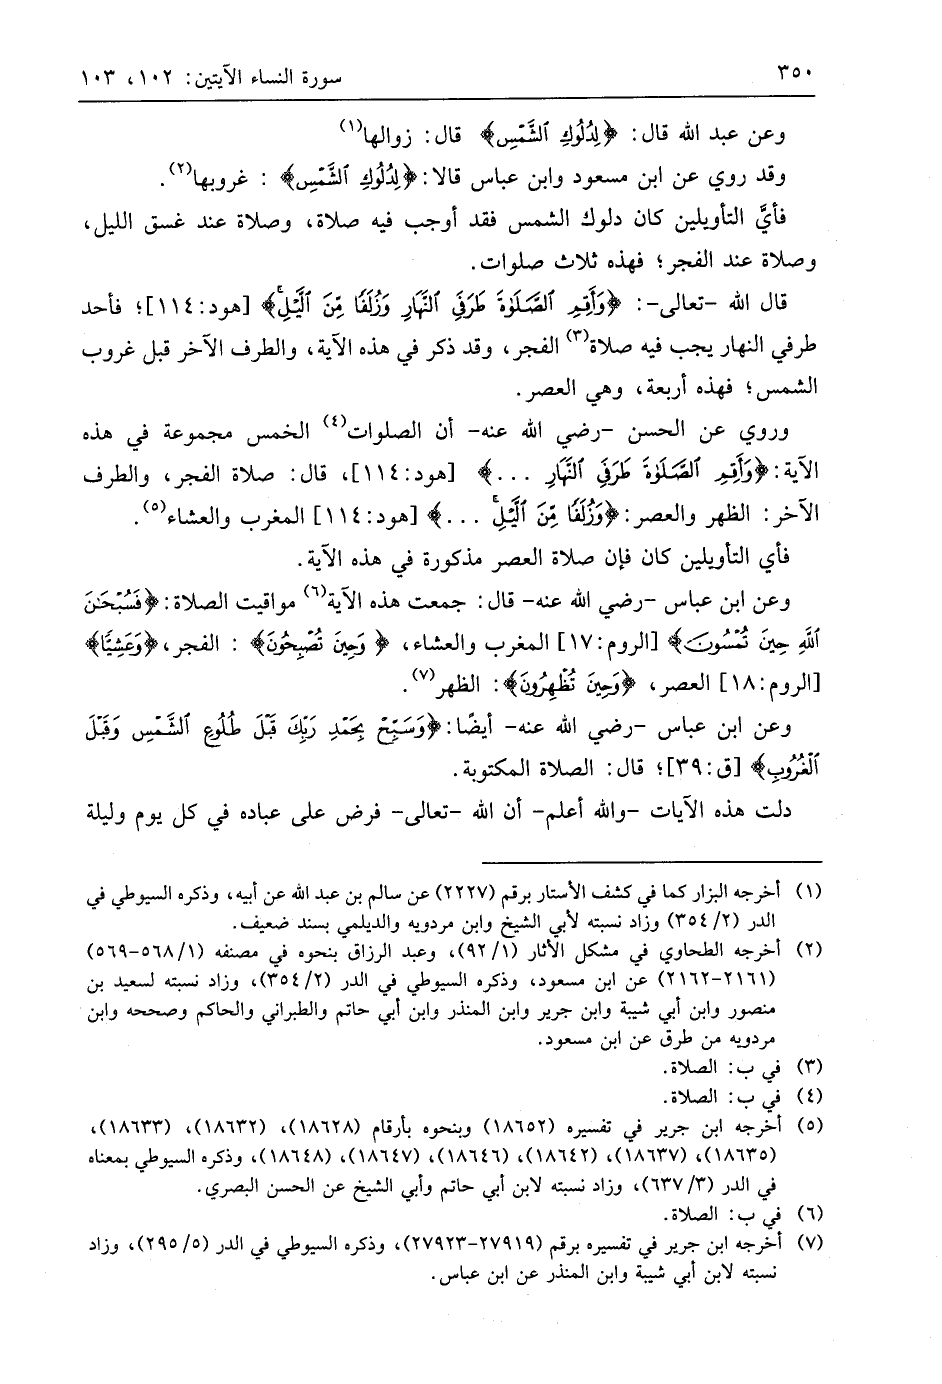 ٣٥٠
سورة النساء الآيتين: ١٠٢، ١٠٣
وعن عبد الله قال: ﴿لِدُلُوكِ ٱلشَّمْسِ﴾ قال: زوالها(١)
وقد روي عن ابن مسعود وابن عباس قالا: ﴿لِدُلُوكِ ٱلشَّمْسِ﴾ : غروبها(٢).
فأيَّ التأويلين كان دلوك الشمس فقد أوجب فيه صلاة، وصلاة عند غسق الليل،
وصلاة عند الفجر؛ فهذه ثلاث صلوات.
قال الله -تعالى-: ﴿وَأَقِمِ ٱلصَّلَوٰةَ طَرَفَيِ ٱلنَّهَارِ وَزُلَفًا مِّنَ ٱلَّيْلِۚ﴾ [هود:١١٤]؛ فأحد
طرفي النهار يجب فيه صلاة(٣) الفجر، وقد ذكر في هذه الآية، والطرف الآخر قبل غروب
الشمس؛ فهذه أربعة، وهي العصر.
وروي عن الحسن -رضي الله عنه- أن الصلوات(٤) الخمس مجموعة في هذه
الآية: ﴿وَأَقِمِ ٱلصَّلَوٰةَ طَرَفَيِ ٱلنَّهَارِ ...﴾ [هود:١١٤]، قال: صلاة الفجر، والطرف
الآخر: الظهر والعصر: ﴿وَزُلَفًا مِّنَ ٱلَّيْلِۚ ...﴾ [هود:١١٤] المغرب والعشاء(٥).
فأي التأويلين كان فإن صلاة العصر مذكورة في هذه الآية.
وعن ابن عباس -رضي الله عنه- قال: جمعت هذه الآية(٦) مواقيت الصلاة: ﴿فَسُبْحَٰنَ
ٱللَّهِ حِينَ تُمْسُونَ﴾ [الروم:١٧] المغرب والعشاء، ﴿ وَحِينَ تُصْبِحُونَ﴾ : الفجر، ﴿وَعَشِيًّا﴾
[الروم:١٨] العصر، ﴿وَحِينَ تُظْهِرُونَ﴾: الظهر(٧).
وعن ابن عباس -رضي الله عنه- أيضًا: ﴿وَسَبِّحْ بِحَمْدِ رَبِّكَ قَبْلَ طُلُوعِ ٱلشَّمْسِ وَقَبْلَ
ٱلْغُرُوبِ﴾ [ق:٣٩]؛ قال: الصلاة المكتوبة.
دلت هذه الآيات -والله أعلم- أن الله -تعالى- فرض على عباده في كل يوم وليلة
(١) أخرجه البزار كما في كشف الأستار برقم (٢٢٢٧) عن سالم بن عبد الله عن أبيه، وذكره السيوطي في
الدر (٢/ ٣٥٤) وزاد نسبته لأبي الشيخ وابن مردويه والديلمي بسند ضعيف.
(٢) أخرجه الطحاوي في مشكل الأثار (١/ ٩٢)، وعبد الرزاق بنحوه في مصنفه (١/ ٥٦٨-٥٦٩)
(٢١٦١-٢١٦٢) عن ابن مسعود، وذكره السيوطي في الدر (٢/ ٣٥٤)، وزاد نسبته لسعيد بن
منصور وابن أبي شيبة وابن جرير وابن المنذر وابن أبي حاتم والطبراني والحاكم وصححه وابن
مردويه من طرق عن ابن مسعود.
(٣) في ب: الصلاة.
(٤) في ب: الصلاة.
(٥) أخرجه ابن جرير في تفسيره (١٨٦٥٢) وبنحوه بأرقام (١٨٦٢٨)، (١٨٦٣٢)، (١٨٦٣٣)،
(١٨٦٣٥)، (١٨٦٣٧)، (١٨٦٤٢)، (١٨٦٤٦)، (١٨٦٤٧)، (١٨٦٤٨)، وذكره السيوطي بمعناه
في الدر (٣/ ٦٣٧)، وزاد نسبته لابن أبي حاتم وأبي الشيخ عن الحسن البصري.
(٦) في ب: الصلاة.
(٧) أخرجه ابن جرير في تفسيره برقم (٢٧٩١٩-٢٧٩٢٣)، وذكره السيوطي في الدر (٥/ ٢٩٥)، وزاد
نسبته لابن أبي شيبة وابن المنذر عن ابن عباس.